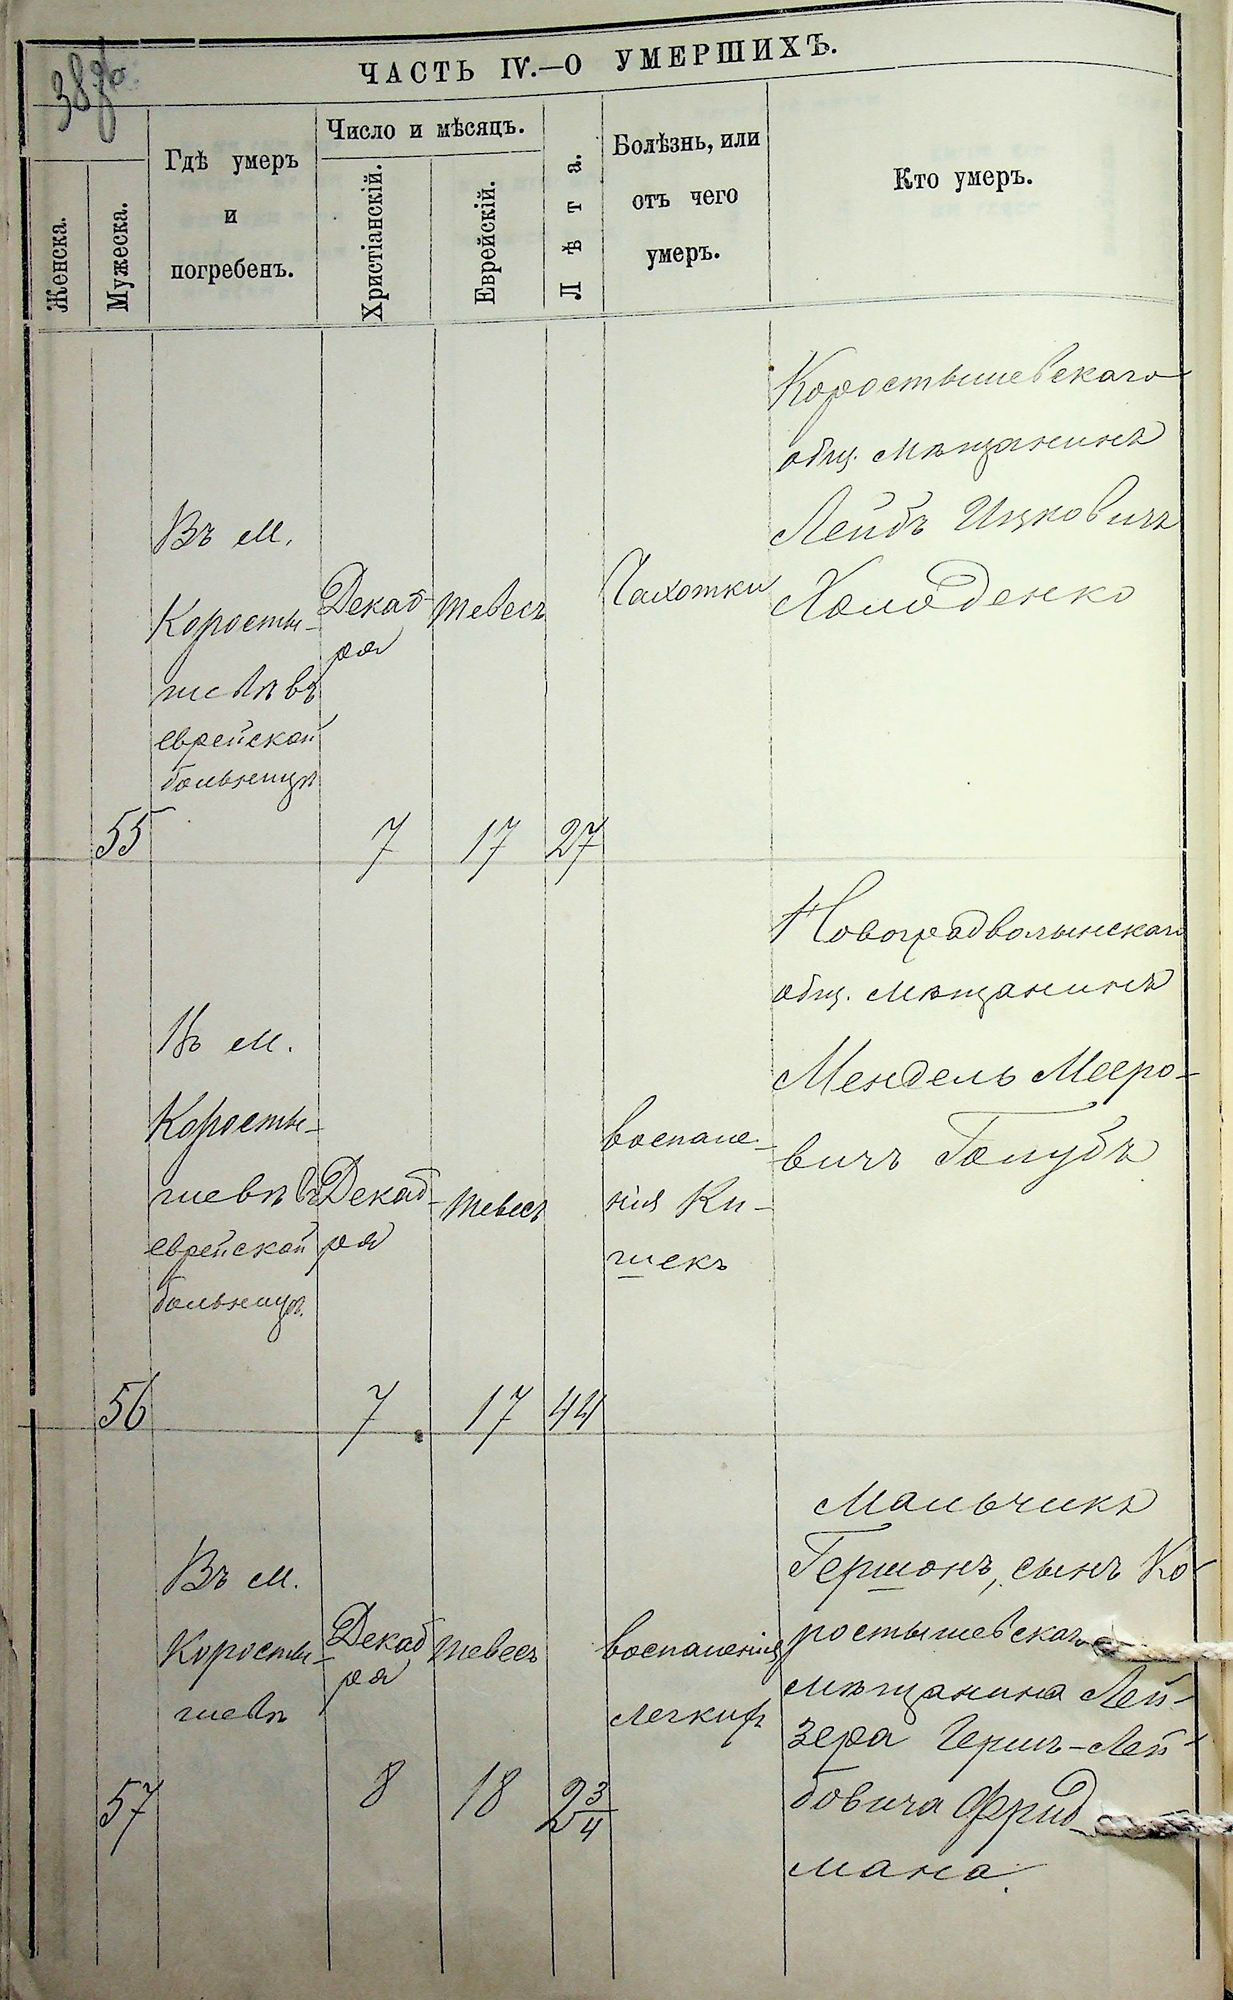 38об
ЧАСТЬ IV.—О УМЕРШИХЪ.
Женска.
Мужеска.
Гдѣ умеръ
и
погребенъ.
Число и мѣсяцъ.
Христіанскій.
Еврейскій.
Лѣта.
Болѣзнь, или
отъ чего
умеръ.
Кто умеръ.
55
Въ м.
Коросты-
шевѣ въ
еврейской
больницѣ
Декаб-
ря
7
Тевесъ
17
27
Чахотки
Коростышевскаго
общ. мѣщанинъ
Лейбъ Ицковичъ
Холоденко
56
Въ м.
Коросты-
шевѣ въ
еврейской
больницѣ.
Декаб-
ря
7
Тевесъ
17
44
воспале-
нія Ки-
шекъ
Новоградволынскаго
общ. мѣщанинъ
Мендель Мееро-
вичъ Голубъ
57
Въ м.
Коросты-
шевѣ
Декаб
ря
8
Тевесъ
18
2 3/4
воспаленія
легкихъ
Мальчикъ
Гершонъ, сынъ Ко-
ростышевскаго
мѣщанина Лей-
зера Герш-Лей-
бовича Фрид-
мана.